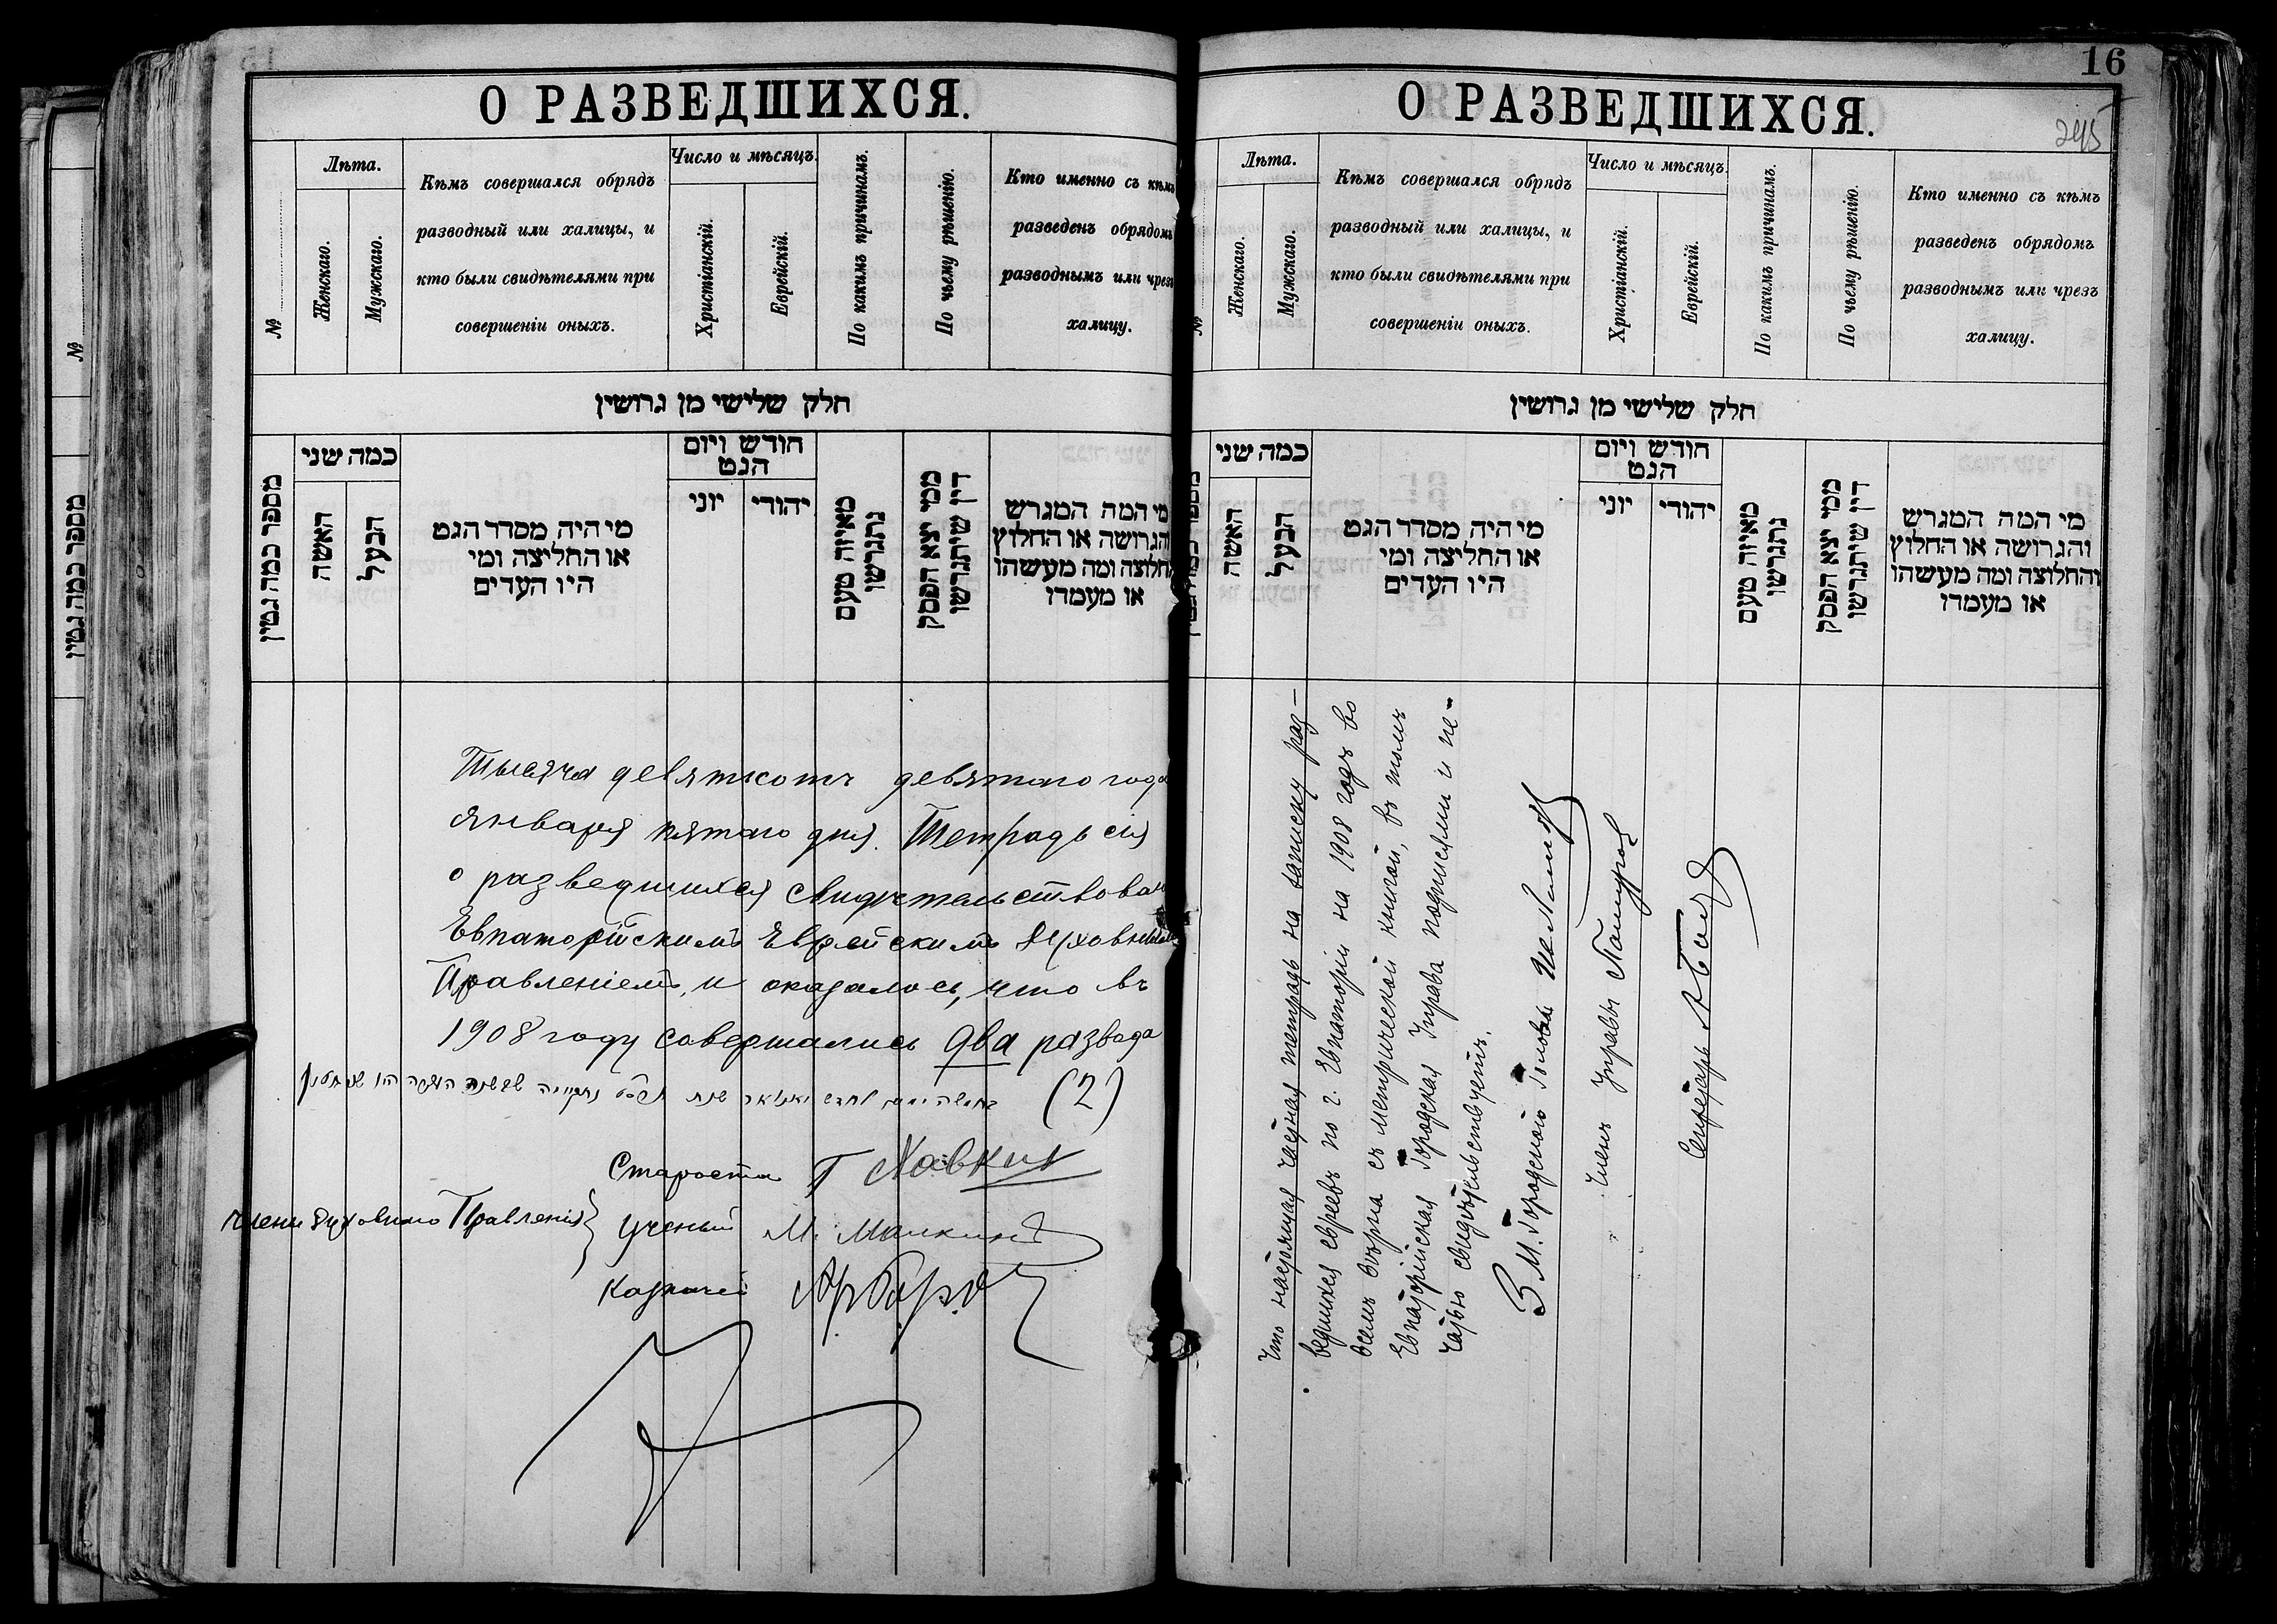 О РАЗВЕДШИХСЯ.
№
Лѣта.
Женскаго.
Мужскаго.
Кѣмъ совершался обрядъ
разводный или халицы, и
кто были свидѣтелями при
совершеніи оныхъ.
Число и мѣсяцъ.
Христіанскій.
Еврейскій.
По какимъ причинамъ.
По чьему рѣшенію.
Кто именно съ кѣмъ
разведенъ обрядомъ
разводнымъ или чрезъ
халицу.
חלק שלישי מן גרושין
מספר כמה גטין
כמה שני
האשה
הבעל
מי היה מסדר הגט
או החליצה ומי
היו העדים
חודש ויום
הגט
יוני
יהודי
מאיזה טעם
נתגרשו
ממי יצא הפסק
דין שיתגרשו
מי המה המגרש
והגרושה או החלוץ
והחלוצה ומה מעשהו
או מעמדו
Тысяча девятьсотъ девятаго года
Января пятаго дня. Тетрадь сія
о разведшихся свидѣтельствована
Евпаторійскимъ Еврейскимъ Духовнымъ
Правленіемъ, и оказалось, что въ
1908 году совершались два развода
(2)
Староста Г Хавкин
Члены Духовнаго Правленія } Ученый М. Малкинъ
Казначей
№
מספר כמה גטין
16
245
О РАЗВЕДШИХСЯ.
№
Лѣта.
Женскаго.
Мужскаго.
Кѣмъ совершался обрядъ
разводный или халицы, и
кто были свидѣтелями при
совершеніи оныхъ.
Число и мѣсяцъ.
Христіанскій.
Еврейскій.
По какимъ причинамъ.
По чьему рѣшенію.
Кто именно съ кѣмъ
разведенъ обрядомъ
разводнымъ или чрезъ
халицу.
חלק שלישי מן גרושין
כמה שני
האשה
הבעל
מי היה מסדר הגט
או החליצה ומי
היו העדים
חודש ויום
הגט
יוני
יהודי
מאיזה טעם
נתגרשו
ממי יצא הפסק
דין שיתגרשו
מי המה המגרש
והגרושה או החלוץ
והחלוצה ומה מעשהו
או מעמדו
Что настоящая частная тетрадь на записку раз-
ведшихся евреевъ по г. Евпаторіи на 1908 годъ во
всемъ вѣрна съ метрической книгой, въ томъ
Евпаторійская Городская Управа подписями и пе-
чатью свидѣтельствуетъ.
З М. Городского Головы
Членъ Управы
Секретарь